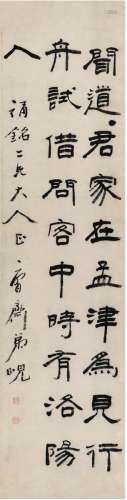 聞道君家在孟津為見行
舟試借問客中時有洛陽
人
二兄大人正
弟